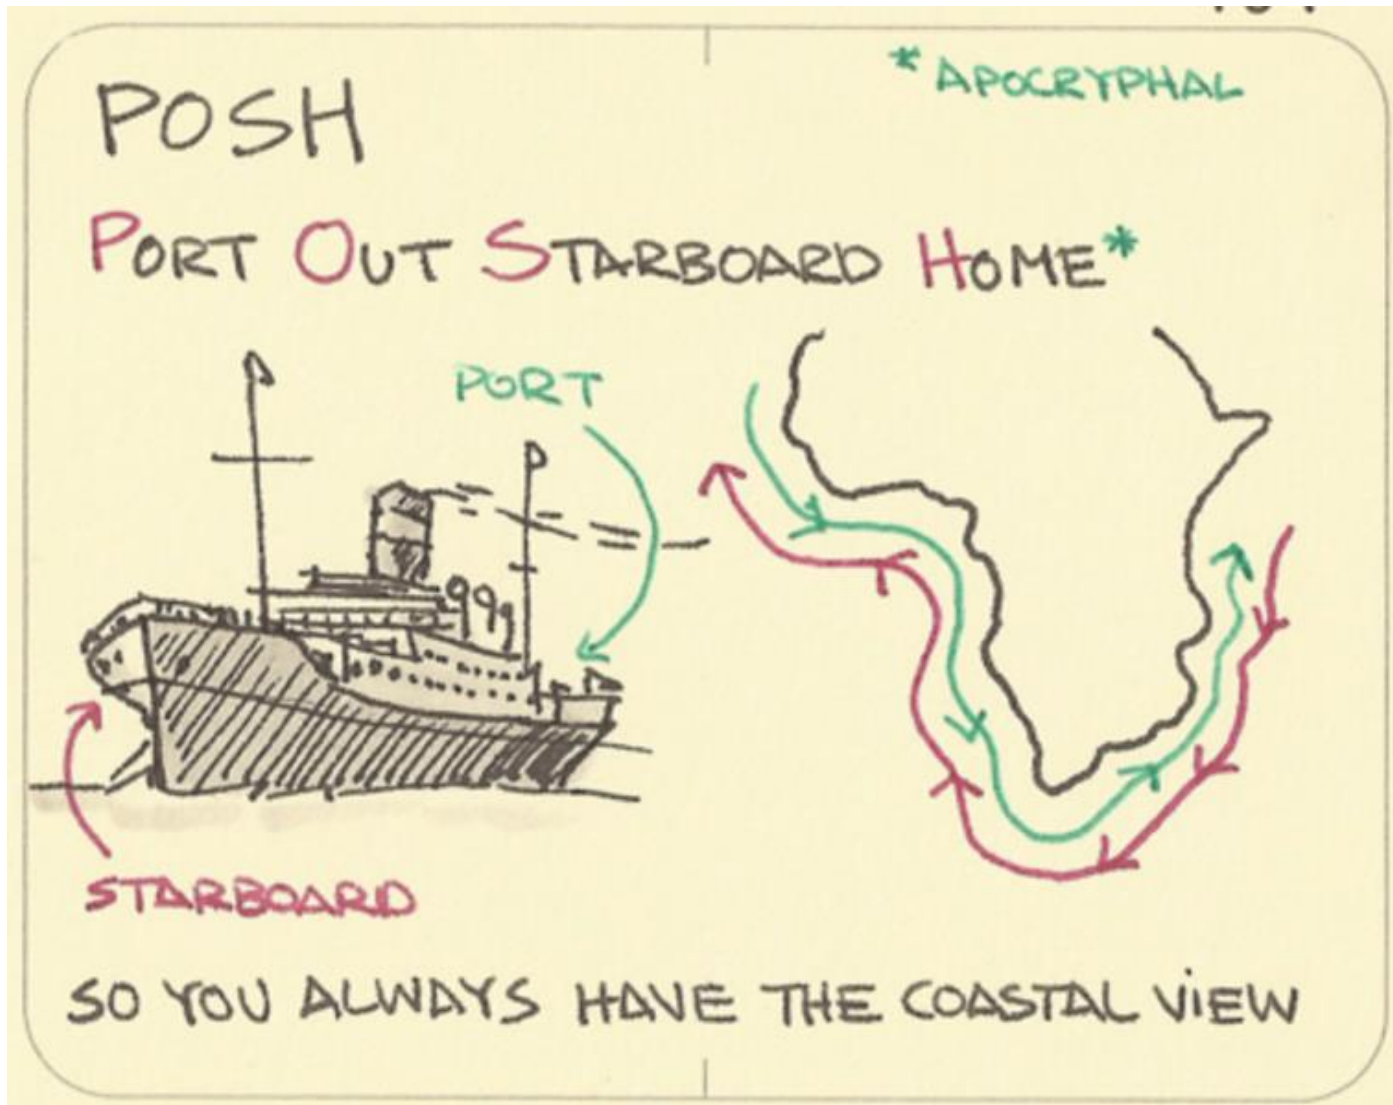 *APOCRYPHAL
POSH
PORT OUT STARBOARD HOME*
PORT
STARBOARD
SO YOU ALWAYS HAVE THE COASTAL VIEW